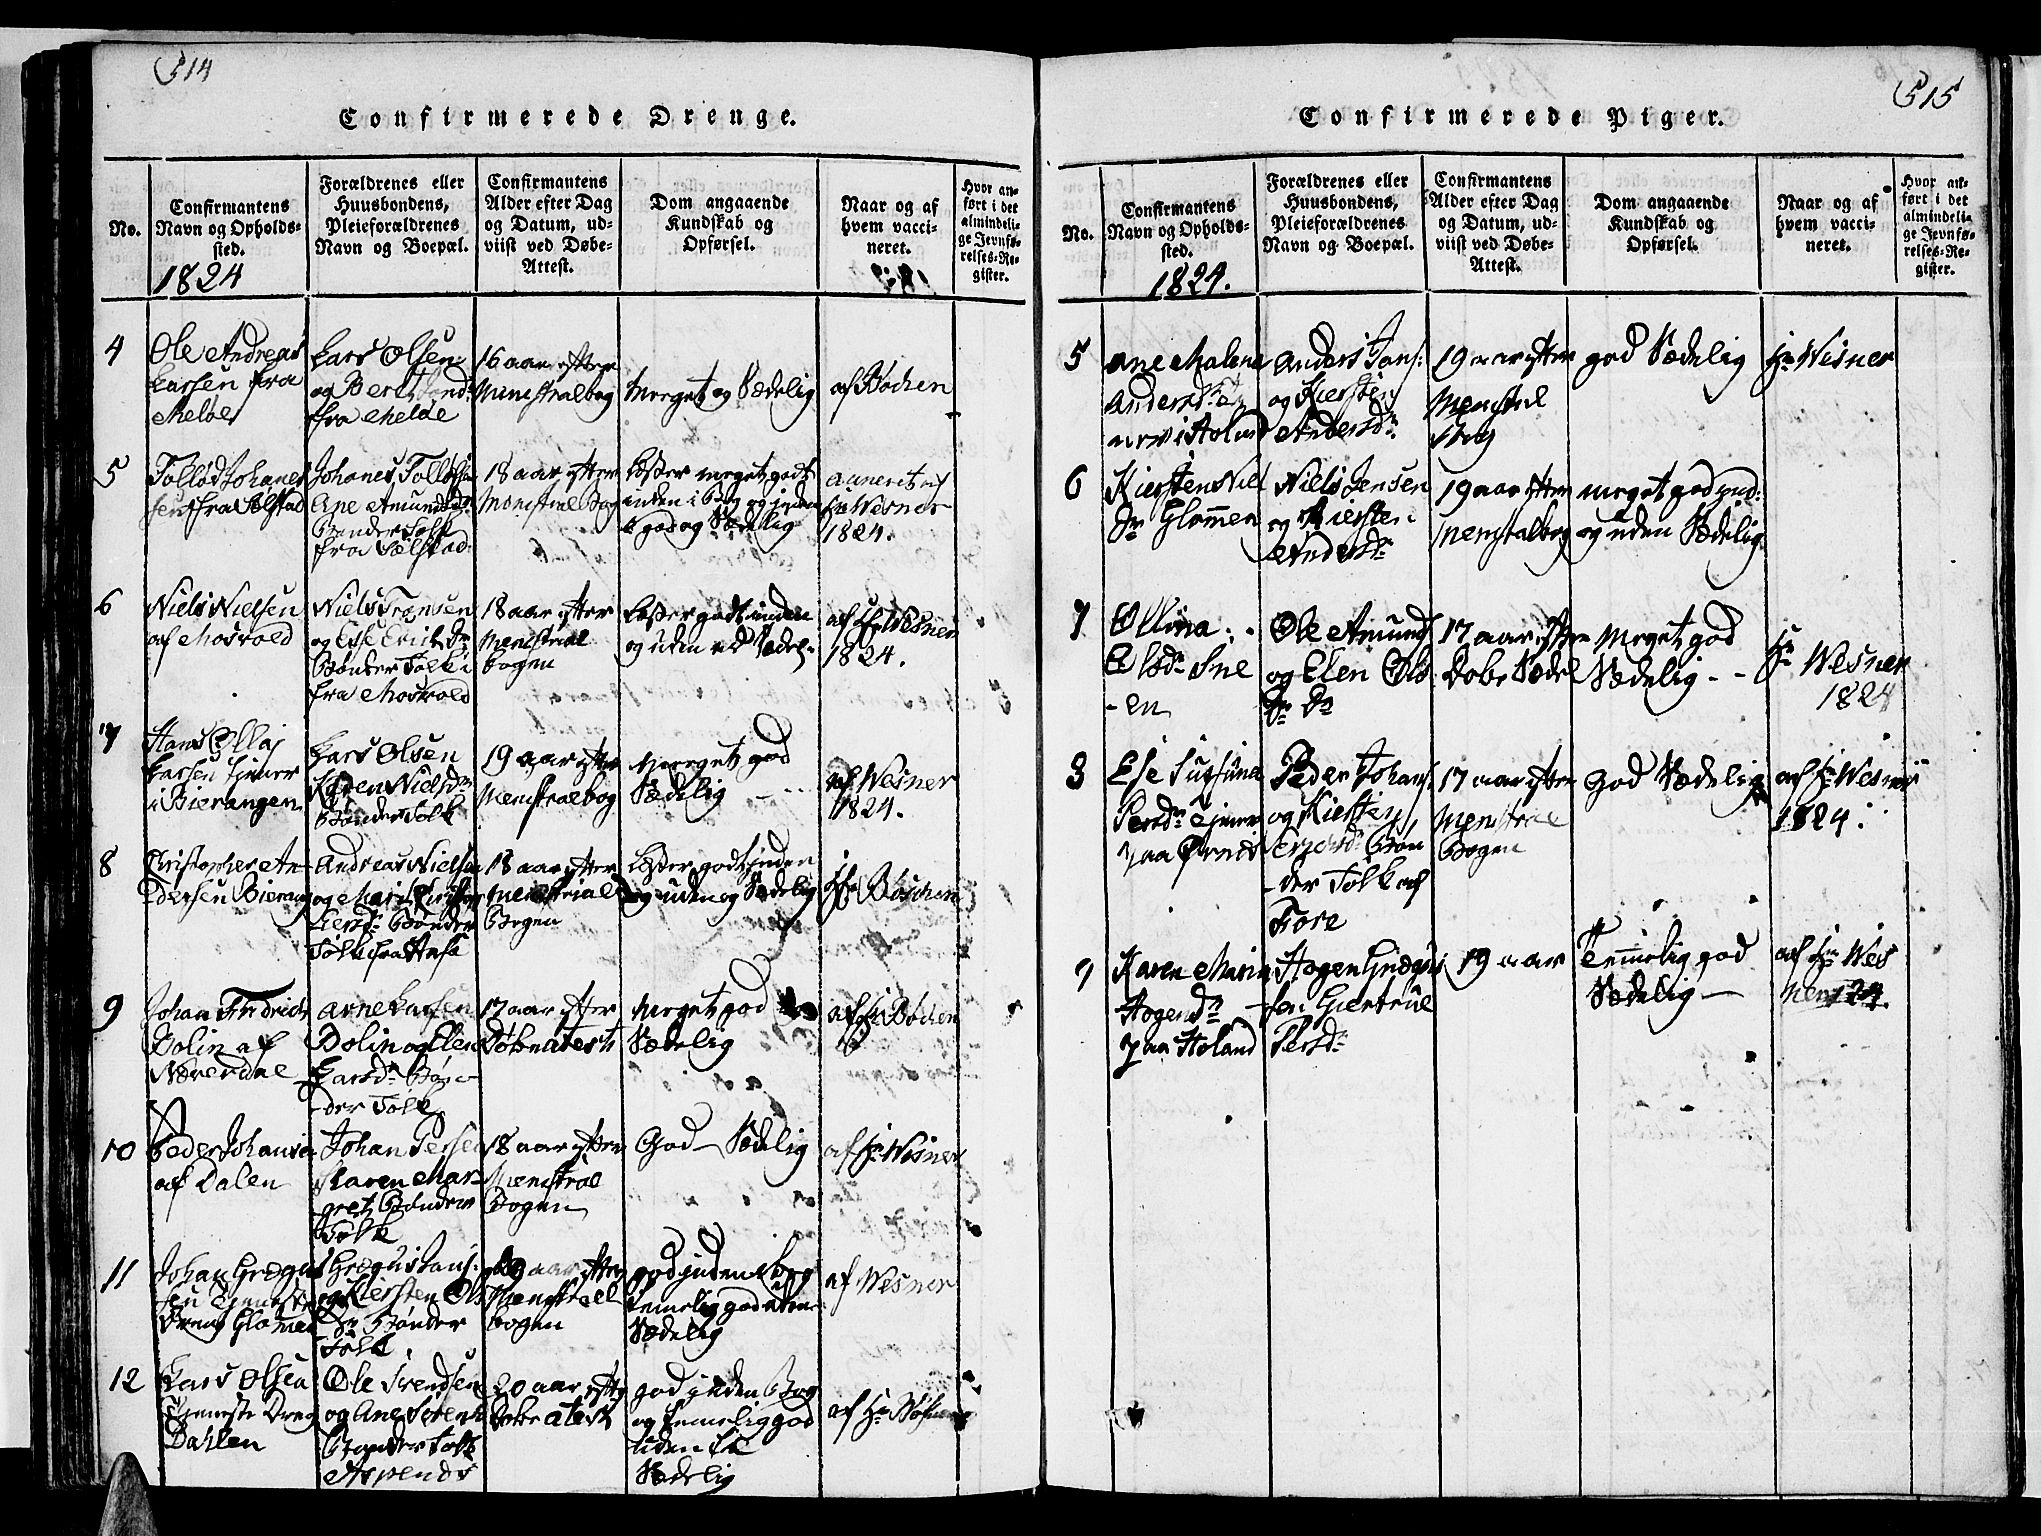 514
Confirmerede Drenge.
No.
Confirmantens
Navn og Opholds-
sted.
1824
Forældrenes eller
Huusbondens,
Pleieforældrenes
Navn og Boepæl.
Confirmantens
Alder efter Dag
og Datum, ud-
viist ved Døbe-
Attest.
Dom angaaende
Kundskab og
Opførsel.
Naar og af
hvem vacci-
neret.
Hvor an-
ført i det
almindeli-
ge Jevnfø-
relses-Re-
gister.
4
Ole Andreas
Larsen fra
Meløe
Lars Olsen
og Berit
fra Meløe
16 aar efter
Menistralbog
Meget og Sædelig
af Bochen
5
Tollød Johanes
sen fra Sælstad
Johanes Tollefsen
Ane Amundsd.
Bønder Folk
fra Sælstad
18 aar efter
Menistral Bog
Læser meget godt
inden i Bog og
god og Sædelig
af
Hr Wesner
1824.
6
Niels Nielsen
af Mosvold
Niels Tronsen
og Else
Bønder Folk
fra Mosvold
18 aar efter
Menistrael
Bogen
Læser godt inden
og uden ad Sædel.
af Hr Wesner
1824.
7
Hans Ollaj
Larsen tjener
i Bierangen
Lars Olsen
Karen Nielsdr
Bønder Folk
19 aar efter
Menistraelbog
Meeget god
Sædelig
af Wesner
1824.
8
Christopher An-
dersen Bierang
Andreas Nielsen
og Mari
Larsdr Bønder
Folk fra
18 aar efter
Menistrial
Bogen
Læser godt inden
og uden og Sædelig
Hr Bøschen
9
Johan Fredrich
Dolin af
Nærerdal
Arne Larsen
Dolin og Elen
Larsdr Bøn-
der Folk
17 aar efter
Døbe atest
Meget god
Sædelig
af Hr Bøchen
10
Peder Johansen
af Dalen
Johan Persen
Karen Mar-
gret Bønder
Folk
18 aar efter
Menistrael
Bogen
God - Sædelig
af Hr Wesner
11
Johan Grægus
sen Tjeneste
Dreng Glomen
Grægus Jans:
og Kiersten Ols
dr Bønder
Folk.
aar efter
Menistrael
Bogen
god inden Bog
temelig god uden
Sædelig
af Wesner
12
Lars Olsen
Tjeneste Dreng
Dahlen
Ole Svendsen
og Ane
Bønder Folk
20 aar efter
Døbe atest
god inden Bog
og temelig god
uden
Sædelig
af Hr
515
Confirmerede Piger.
No.
Confirmantens
Navn og Opholds-
sted.
1824.
Forældrenes eller
Huusbondens,
Pleieforældrenes
Navn og Boepæl.
Confirmantens
Alder efter Dag
og Datum, ud-
viist ved Døbe-
Attest.
Dom angaaende
Kundskab og
Opførsel.
Naar og af
hvem vacci-
neret.
Hvor an-
ført i det
almindeli-
ge Jevnfø-
relses-Re-
gister.
5
Ane Malena
Andersdr
Anders Jans:
og Kiersten
Andersdr
19 aar efter
Menistral
god Sædelig
Hr Wesner
6
Kiersten Niels
dr Glommen
Niels Jensen
og Kiersten
Andersdr
19 aar efter
Menistalbog
meget god ind:
og uden Sædelig
7
Ollina
Olsdr Sne
-en
Ole Amund
og Elen Ols
dr
17 aar efter
Døbe
Meget god
Sædelig - -
Hr Wesner
1824
8
Else Susanna
Persdr tjener
paa Ørnes
Peder Johans
og Kiersten
Bøn
-der Folk af
Fore
17 aar efter
Menistrael
Bogen
God Sædelig
af Hr Wesner
1824.
9
Karen Maria
Hagendr
paa Holand
Hagen Grægus
sen Giertrue
Persdr
19 aar
Temelig god
Sædelig -
af Hr Wes
ner 24.